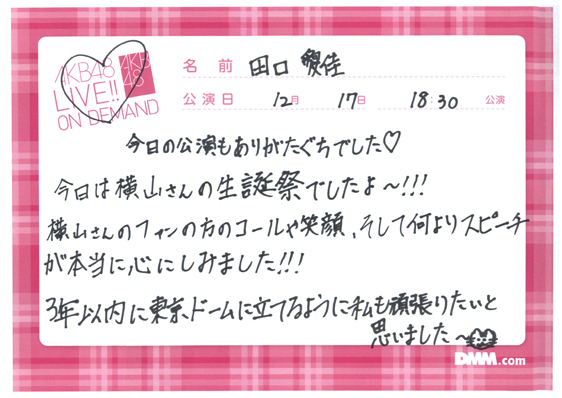 AKB48
LIVE!!
ON DEMAND
AKB
48
名前 田口 愛佳
公演日 12月 17日 18:30 公演
今日の公演もありがたぐちでした♡
今日は横山さんの生誕祭でしたよ〜!!!
横山さんのファンの方のコールや笑顔、そして何よりスピーチ
が本当に心にしみました!!!
3年以内に東京ドームに立てるように私も頑張りたいと
思いました〜
DMM.com